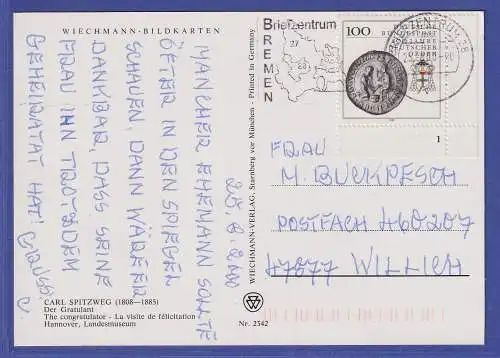 WIECHMANN-BILDKARTEN
MANCHER EHEMANN SOLLTE
ÖFTER IN DEN SPIEGEL
SCHAUEN, DANN WÄRE ER
DANKBAR, DASS SEINE
FRAU IHN TROTZDEM
GEHEIRATET HAT!
CARL SPITZWEG (1808—1885)
Der Gratulant
The congratulator - La visite de félicitation
Hannover, Landesmuseum
Nr. 2342
WIECHMANN-VERLAG, Starnberg vor München - Printed in Germany
Briefzentrum
27
BREMEN
100
DEUTSCHE BUNDESPOST
800 JAHRE
DEUTSCHER
ORDEN
1
FRAU
M. BUCKPESCH
POSTFACH 460207
47877 WILLICH